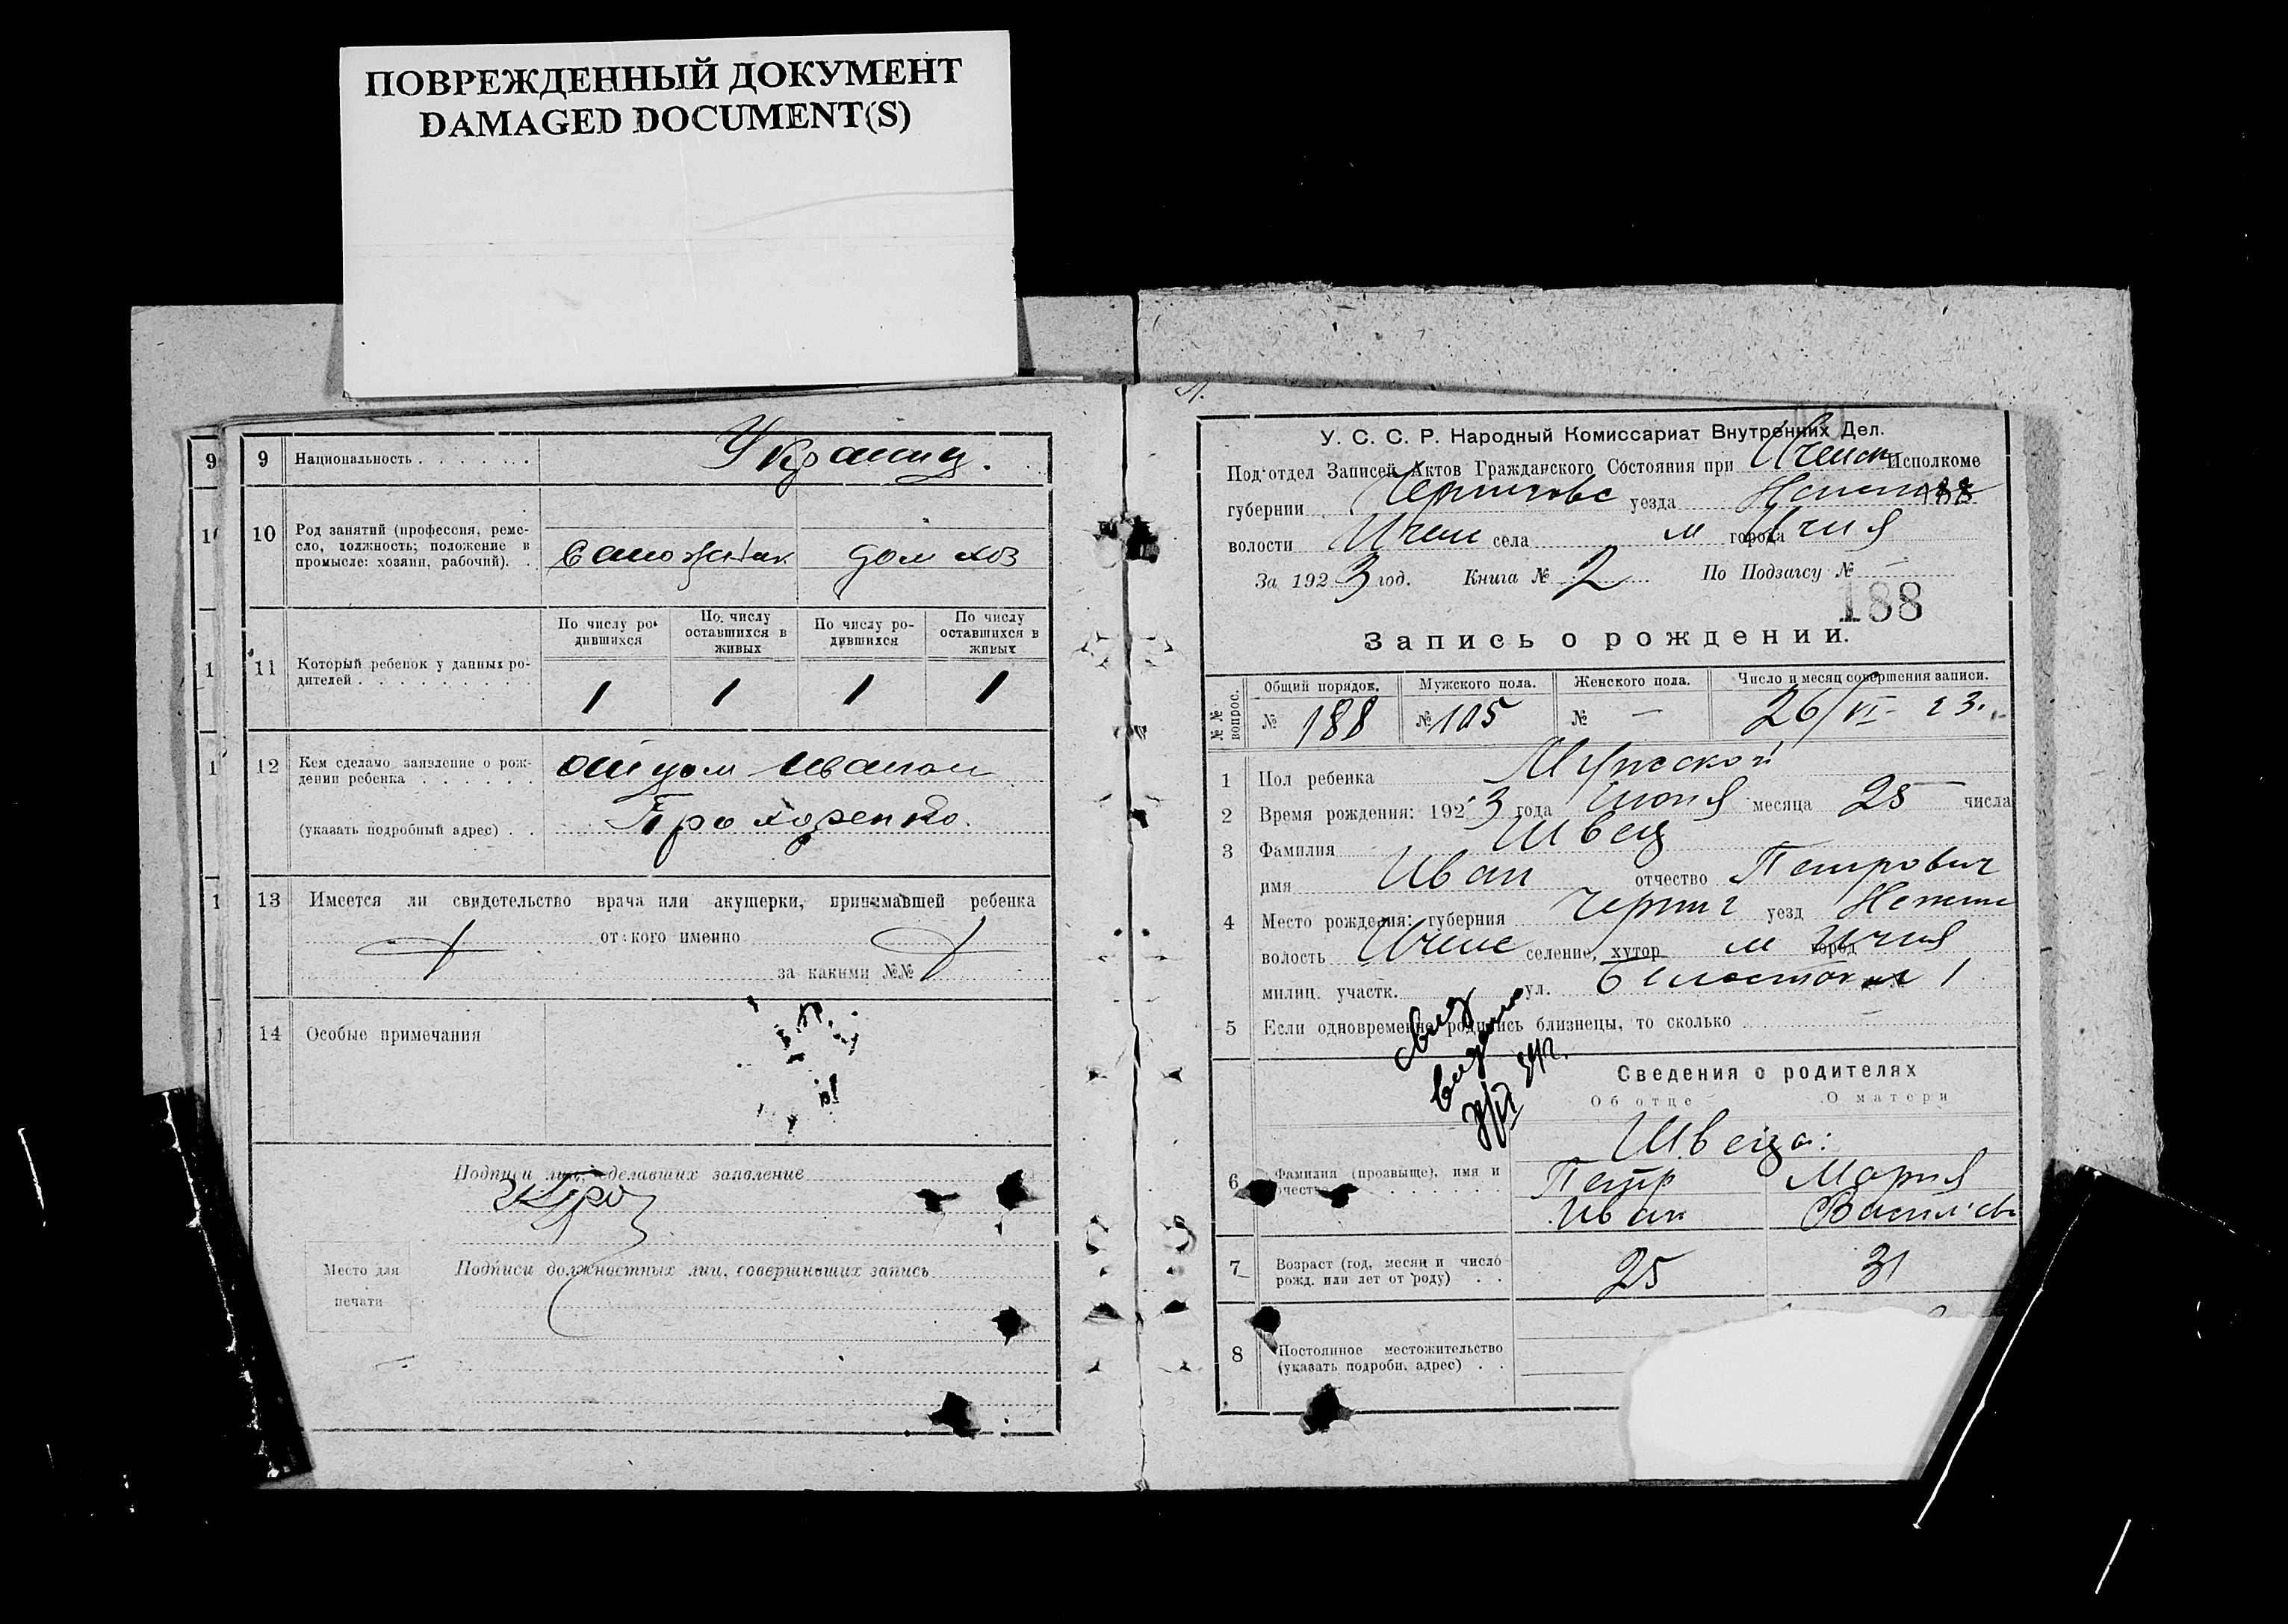 ПОВРЕЖДЕННЫЙ ДОКУМЕНТ
DAMAGED DOCUMENT(S)
9
1
1
1
1
9 Национальность Украинц.
10 Род занятий (профессия, реме-
сло, должность; положение в
промысле: хозяин, рабочий).
сапожник дом хоз
По числу ро-
дившихся
По числу
оставшихся в
живых
По числу ро-
дившихся
По числу
оставшихся в
живых
11 Который ребенок у данных ро-
дителей
1 1 1 1
12 Кем сделано заявление о рож-
дении ребенка отцом Иваном
(указать подробный адрес) Прохоренко.
13 Имеется ли свидетельство врача или акушерки, принимавшей ребенка
от кого именно
за какими №№
14 Особые примечания
Подписи лиц, сделавших заявление
Подписи должностных лиц, совершивших запись
Место для
печати
У. С. С. Р. Народный Комиссариат Внутренних Дел.
Под'отдел Записей Актов Гражданского Состояния при Иченск Исполкоме
губернии Черниговс уезда 188
волости Ичен села м города Ичня
За 1923 год. Книга № 2 По Подзагсу № —
188
Запись о рождении.
№№ вопрос.
Общий порядок. Мужского пола. Женского пола. Число и месяц совершения записи.
№ 188 № 105 № — 26/VI- 23.
1 Пол ребенка Мужской
2 Время рождения: 1923 года Июня месяца 25 числа
3 Фамилия Швец
имя Иван отчество Петрович
4 Место рождения: губерния Черниг уезд Нежин
волость Ичнс селение, хутор м город Ичня
милиц. участк. ул. 1
5 Если одновременно родились близнецы, то сколько —
свид
выдано
Сведения о родителях
Об отце О матери
Швеца:
6 Фамилия (прозвыще), имя и
отчество
Петр Мария
Иван Василев
7 Возраст (год, месяц и число
рожд. или лет от роду)
25 31
8 Постоянное местожительство
(указать подробн. адрес)